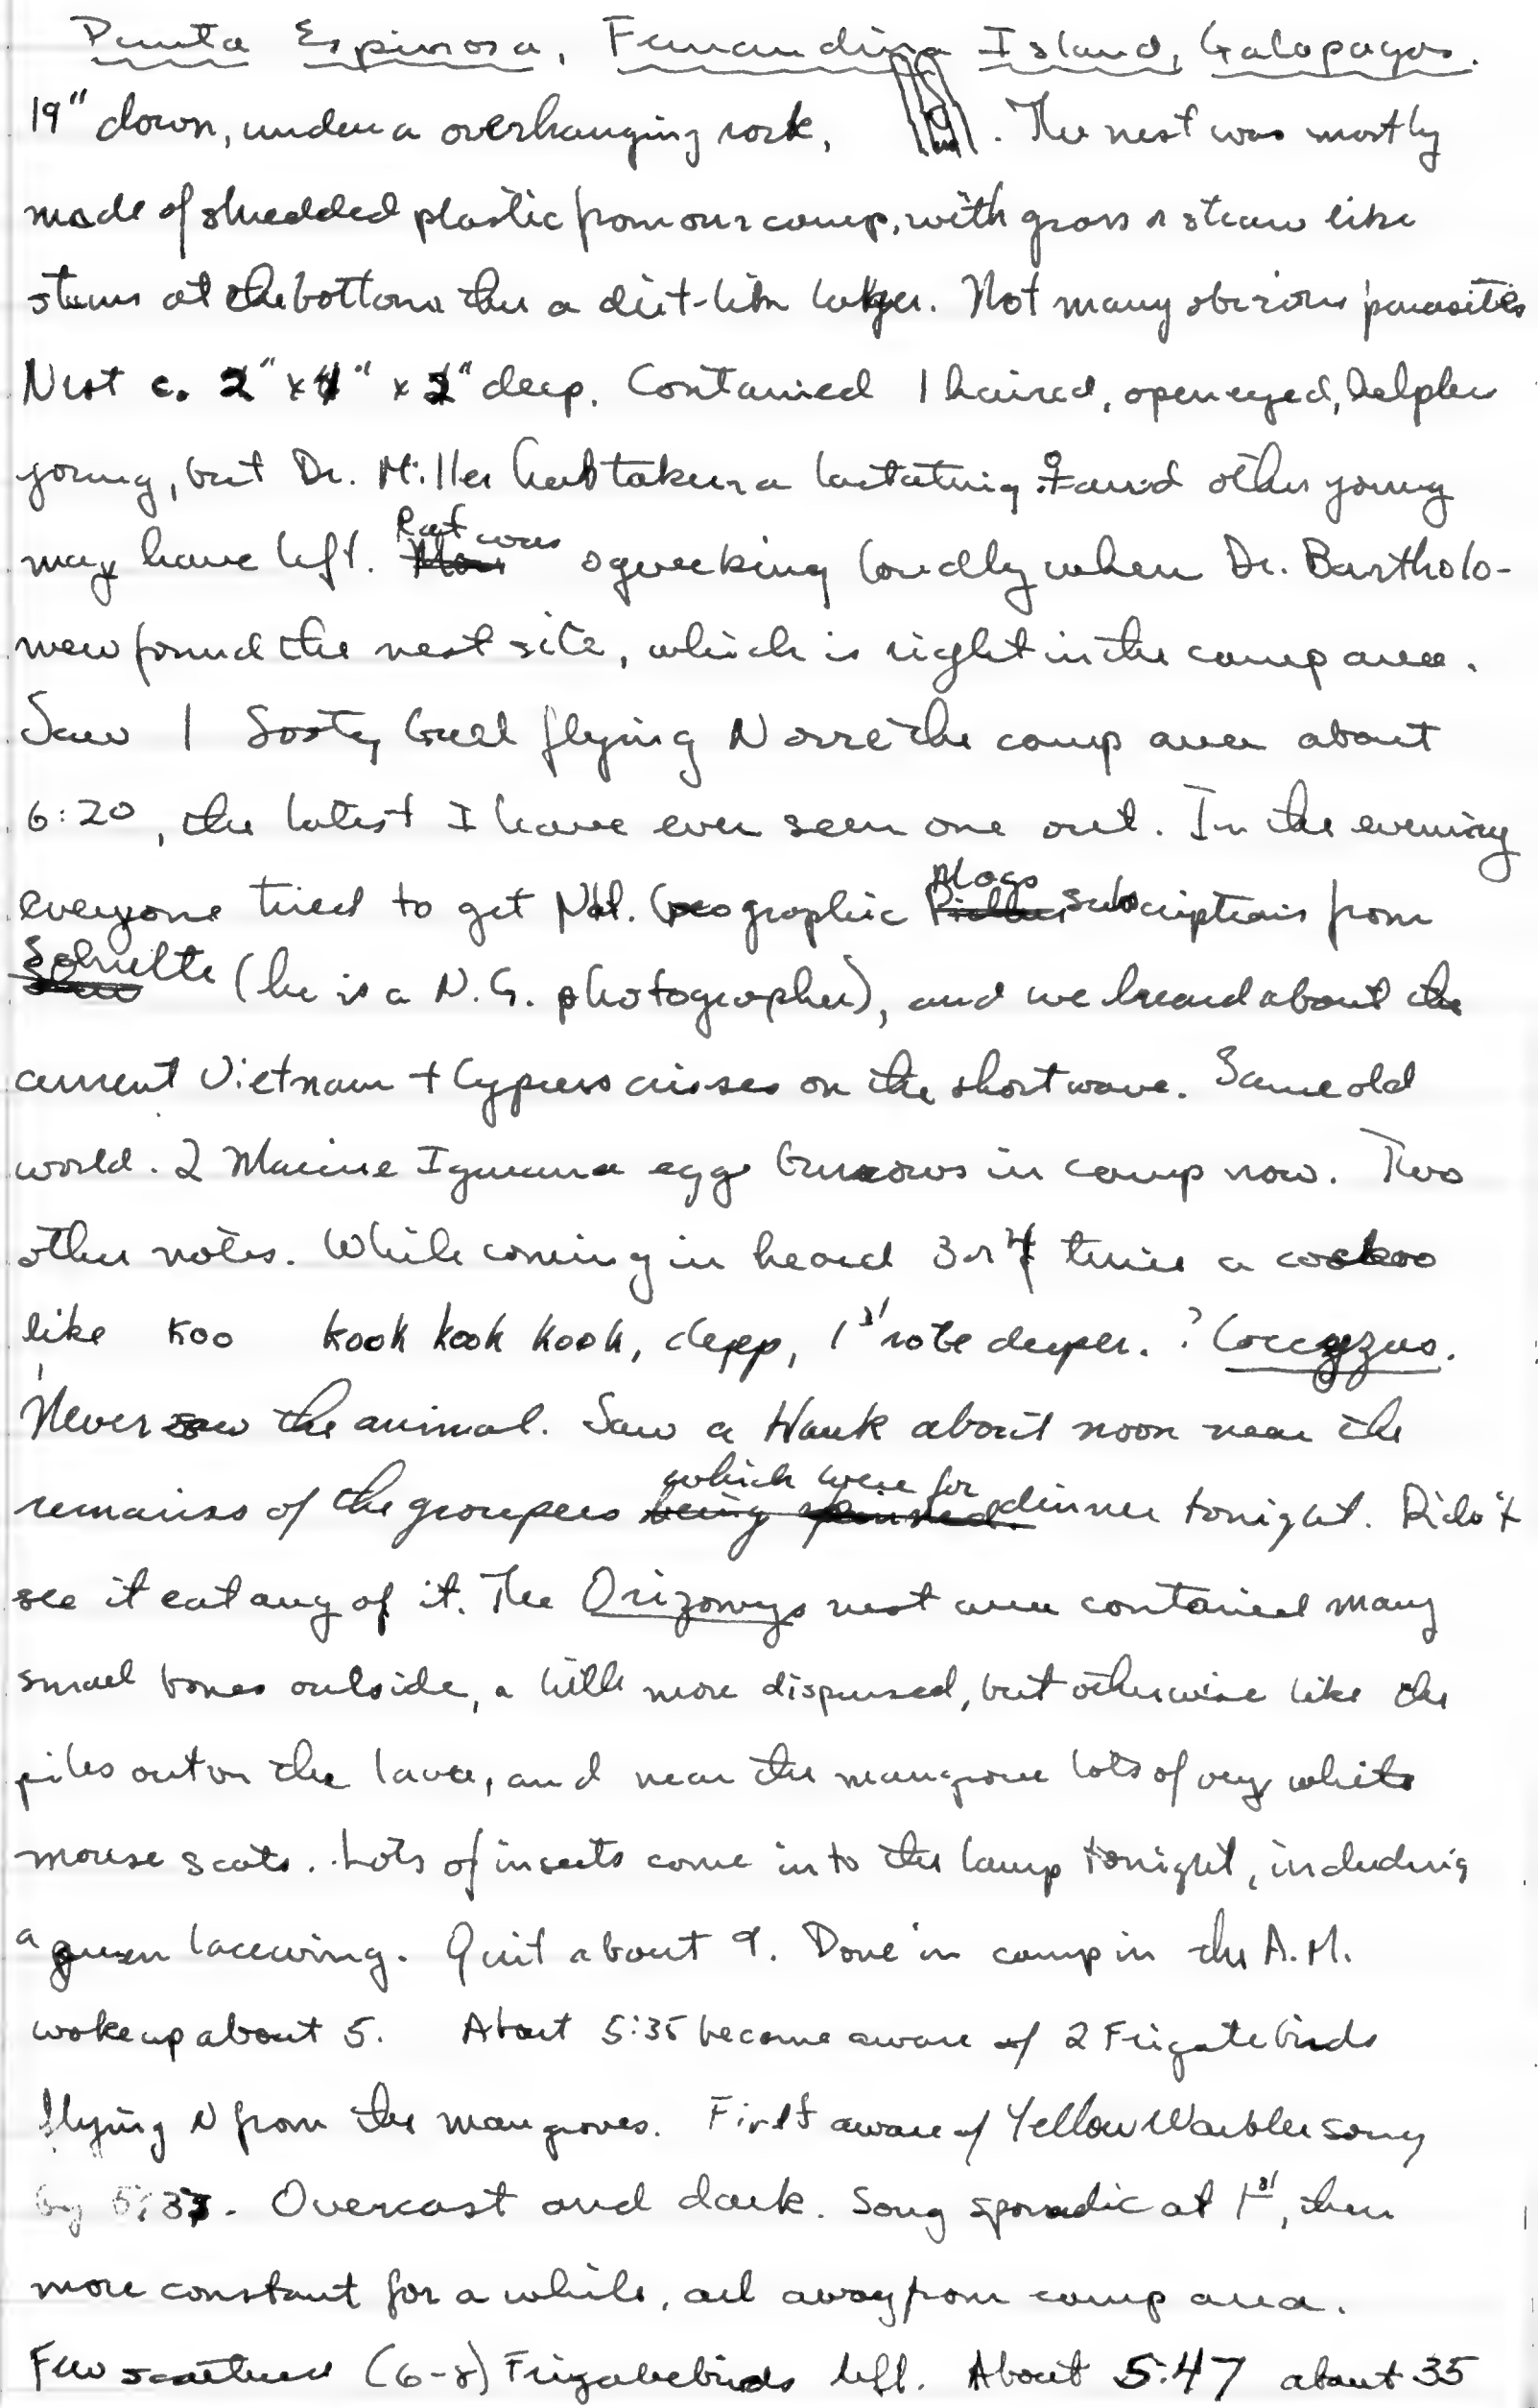 Punta Espinosa, Fernandina Island, Galapagos.
19" down, under a overhanging rock, . The nest was mostly
made of shredded plastic from our camp, with grass or straw like
stems at the bottom then a dirt-like layer. Not many obvious parasites
Nest c. 2" x 4" x 2" deep. Contained 1 haired, open eyed, helpless
young, but Dr. Miller had taken a lactating ♀ and other young
may have left. Rat was squeeking loudly when Dr. Bartholo-
mew found the nest site, which is right in the camp area.
Saw 1 Sooty Gull flying N over the camp area about
6:20, the latest I have ever seen one out. In the evening
everyone tried to get Nat. Geographic Mags subscriptions from
Schulte (he is a N.G. photographer), and we heard about the
current Vietnam + Cyprus crises on the short wave. Same old
world. 2 Marine Iguana egg burrows in camp now. Two
other notes. While coming in heard 3 or 4 times a cookoo
like Koo Kook Kook Kook, depp, 1st note deeper. ? Coccyzus.
Never saw the animal. Saw a Hawk about noon near the
remains of the groupers which were for dinner tonight. Didn't
see it eat any of it. The Orizomys nest area contained many
small bones outside, a little more dispersed, but otherwise like the
piles out on the lava, and near the mangrove lots of very white
mouse scats. Lots of insects come in to the lamp tonight, including
a green lacewing. Quit about 9. Done in camp in the A.M.
woke up about 5. About 5:35 became aware of 2 Frigatebirds
flying N from the mangroves. First aware of Yellow Warbler song
by 5:37. Overcast and dark. Song sporadic at 1st, then
more constant for a while, all away from camp area.
Few scattered (6-8) Frigatebirds left. About 5:47 about 35